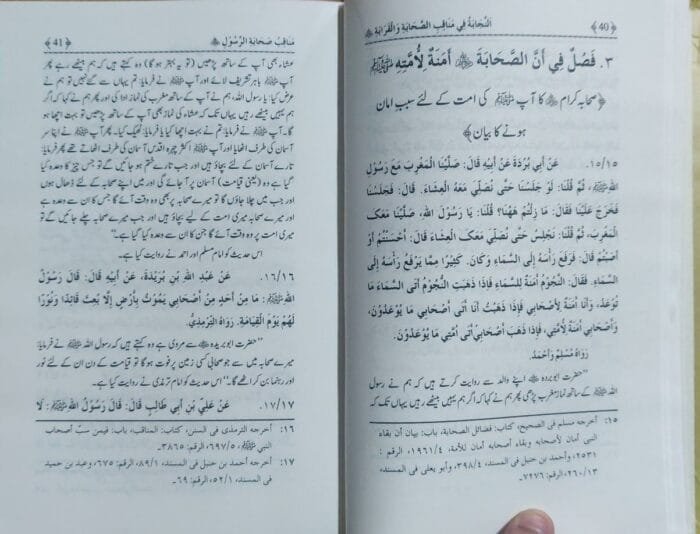 ﴿40﴾ النجابة في مناقب الصحابة والقرابة ﷺ
٣. فَصْلٌ فِي أَنَّ الصَّحَابَةَ ﷺ أَمَنَةٌ لِأُمَّتِهِ ﷺ
﴿صحابہ کرام ﷺ کا آپ ﷺ کی امت کے لئے سببِ امان
ہونے کا بیان﴾
١٥/١٥. عَنْ أَبِي بُرْدَةَ عَنْ أَبِيْهِ قَالَ: صَلَّيْنَا الْمَغْرِبَ مَعَ رَسُوْلِ
اللهِ ﷺ، ثُمَّ قُلْنَا: لَوْ جَلَسْنَا حَتَّى نُصَلِّيَ مَعَهُ الْعِشَاءَ. قَالَ: فَجَلَسْنَا
فَخَرَجَ عَلَيْنَا فَقَالَ: مَا زِلْتُمْ هَهُنَا؟ قُلْنَا: يَا رَسُوْلَ اللهِ، صَلَّيْنَا مَعَکَ
الْمَغْرِبَ، ثُمَّ قُلْنَا: نَجْلِسُ حَتَّى نُصَلِّيَ مَعَکَ الْعِشَاءَ قَالَ: أَحْسَنْتُمْ أَوْ
أَصَبْتُمْ قَالَ: فَرَفَعَ رَأْسَهُ إِلَى السَّمَاءِ وَکَانَ. کَثِيْرًا مِمَّا يَرْفَعُ رَأْسَهُ إِلَى
السَّمَاءِ. فَقَالَ: النُّجُوْمُ أَمَنَةٌ لِلسَّمَاءِ فَإِذَا ذَهَبَتِ النُّجُوْمُ أَتَى السَّمَاءَ مَا
تُوْعَدُ، وَأَنَا أَمَنَةٌ لِأَصْحَابِي فَإِذَا ذَهَبْتُ أَنَا أَتَى أَصْحَابِي مَا يُوْعَدُوْنَ،
وَأَصْحَابِي أَمَنَةٌ لِأُمَّتِي، فَإِذَا ذَهَبَ أَصْحَابِي أَتَى أُمَّتِي مَا يُوْعَدُوْنَ.
رَوَاهُ مُسْلِمٌ وَأَحْمَدُ.
”حضرت ابو بردہ ﷺ اپنے والد سے روایت کرتے ہیں کہ ہم نے رسول
اللہ ﷺ کے ساتھ نماز مغرب پڑھی پھر ہم نے کہا کہ اگر ہم یہیں بیٹھے رہیں یہاں تک کہ
١٥: أخرجه مسلم في الصحيح، کتاب: فضائل الصحابة، باب: بيان أن بقاء
النبي أمان لأصحابه وبقاء أصحابه أمان للأمة، ٤/١٩٦١، الرقم:
٢٥٣١، وأحمد بن حنبل في المسند، ٤/٣٩٨، وأبو يعلى في المسند،
١٣/٢٦٠، الرقم: ٧٢٧٦۔
مناقب صحابة الرسول ﷺ ﴿41﴾
عشاء بھی آپ کے ساتھ پڑھیں (تو یہ بہتر ہوگا) وہ کہتے ہیں کہ ہم بیٹھے رہے پھر
آپ ﷺ باہر تشریف لائے اور آپ ﷺ نے فرمایا: تم یہاں سے گئے نہیں تو ہم نے
عرض کیا: یا رسول اللہ، ہم نے آپ کے ساتھ مغرب کی نماز ادا کی اور پھر ہم نے کہا کہ اگر
ہم یہیں بیٹھے رہیں یہاں تک کہ عشاء کی نماز بھی آپ کے ساتھ پڑھیں تو بہت اچھا ہو
گا۔ آپ ﷺ نے فرمایا: تم نے بہت اچھا کیا یا فرمایا: ٹھیک کیا۔ پھر آپ ﷺ نے اپنا سر
آسمان کی طرف اٹھایا اور آپ ﷺ اکثر چہرہ اقدس آسمان کی طرف اٹھاتے تھے پھر فرمایا:
تارے آسمان کے لئے بچاؤ ہیں اور جب تارے ختم ہو جائیں گے تو جس چیز کا وعدہ
کیا گیا ہے وہ (یعنی قیامت) آسمان پر آ جائے گی اور میں اپنے صحابہ کے لئے ڈھال ہوں
اور جب میں چلا جاؤں گا تو میرے صحابہ پر بھی وہ وقت آئے گا جس کا ان سے وعدہ ہے
اور میرے صحابہ میری امت کے لیے بچاؤ ہیں اور جب میرے صحابہ چلے جائیں گے تو
میری امت پر وہ وقت آئے گا جس کا ان سے وعدہ کیا گیا ہے۔“
اس حدیث کو امام مسلم اور احمد نے روایت کیا ہے۔
١٦/١٦. عَنْ عَبْدِ اللهِ بْنِ بُرَيْدَةَ، عَنْ أَبِيْهِ قَالَ: قَالَ رَسُوْلُ
اللهِ ﷺ: مَا مِنْ أَحَدٍ مِنْ أَصْحَابِي يَمُوْتُ بِأَرْضٍ إِلَّا بُعِثَ قَائِدًا وَنُوْرًا
لَهُمْ يَوْمَ الْقِيَامَةِ. رَوَاهُ التِّرْمِذِيُّ.
”حضرت ابو بریدہ ﷺ سے مروی ہے وہ کہتے ہیں کہ رسول اللہ ﷺ نے فرمایا:
میرے صحابہ میں سے جو صحابی کسی زمین پر فوت ہوگا تو قیامت کے دن ان کے لئے نور
اور رہنما بن کر اٹھے گا۔“ اس حدیث کو امام ترمذی نے روایت کیا ہے۔
١٧/١٧. عَنْ عَلِيِّ بْنِ أَبِي طَالِبٍ قَالَ: قَالَ رَسُوْلُ اللهِ ﷺ: لَا
١٦: أخرجه الترمذى فى السنن، کتاب: المناقب، باب: فيمن سبّ أصحاب
النبى ﷺ، ٥/٦٩٧، الرقم: ٣٨٦٥۔
١٧: أخرجه أحمد بن حنبل فى المسند، ١/٨٩، الرقم: ٦٧٥، وعبد بن حميد
فى المسند، ١/٥٢، الرقم: ٦٩۔